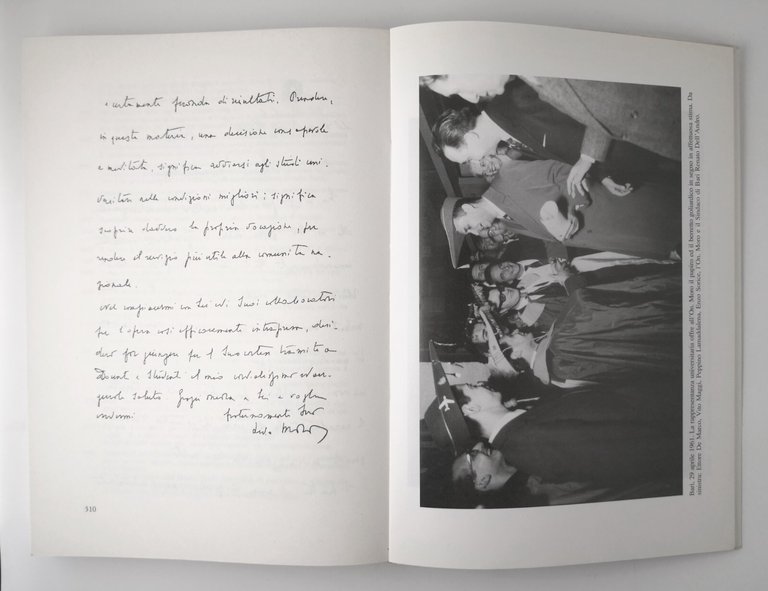 e certamente feconda di risultati. Prendere,
in questa materia, una decisione consapevole
e meditata, significa avviarsi agli studi uni-
versitari nelle condizioni migliori; significa
scoprire davvero la propria vocazione, per
rendere il servizio più utile alla comunità na-
zionale.
Nel compiacermi con Lei ed i Suoi collaboratori
per l'opera così efficacemente intrapresa, desi-
dero far giungere per il Suo cortese tramite a
Docenti e Studenti il mio cordialissimo ed au-
gurale saluto. Grazie ancora a Lei e voglia
credermi
Suo
Aldo Moro
510
Bari, 29 aprile 1961. La rappresentanza universitaria offre all'On. Moro il papiro ed il berretto goliardico in segno di affettuosa stima. Da
sinistra: Ettore De Marzo, Vito Maggi, Peppino Lamaddalena, Enzo Sorice, l'On. Moro e il Sindaco di Bari Renato Dell'Andro.